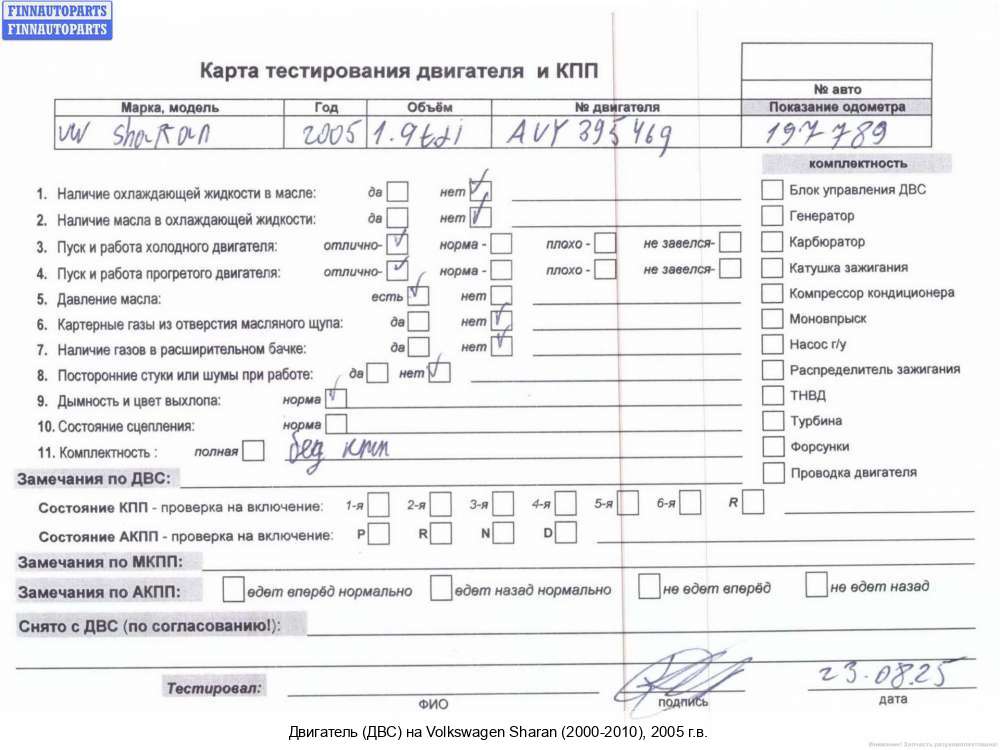 FINNAUTOPARTS
FINNAUTOPARTS
Карта тестирования двигателя и КПП
№ авто
Марка, модель Год Объём № двигателя Показание одометра
VW Sharan 2005 1.9tdi AVY 395469 197789
комплектность
1. Наличие охлаждающей жидкости в масле: да нет
Блок управления ДВС
2. Наличие масла в охлаждающей жидкости: да нет
Генератор
3. Пуск и работа холодного двигателя: отлично- норма - плохо - не завелся-
Карбюратор
4. Пуск и работа прогретого двигателя: отлично- норма - плохо - не завелся-
Катушка зажигания
5. Давление масла: есть нет
Компрессор кондиционера
6. Картерные газы из отверстия масляного щупа: да нет
Моновпрыск
7. Наличие газов в расширительном бачке: да нет
Насос г/у
8. Посторонние стуки или шумы при работе: да нет
Распределитель зажигания
9. Дымность и цвет выхлопа: норма
ТНВД
10. Состояние сцепления: норма
Турбина
11. Комплектность : полная без кпп
Форсунки
Замечания по ДВС:
Проводка двигателя
Состояние КПП - проверка на включение: 1-я 2-я 3-я 4-я 5-я 6-я R
Состояние АКПП - проверка на включение: P R N D
Замечания по МКПП:
Замечания по АКПП: едет вперёд нормально едет назад нормально не едет вперёд не едет назад
Снято с ДВС (по согласованию!):
23.08.25
Тестировал:
ФИО подпись дата
Двигатель (ДВС) на Volkswagen Sharan (2000-2010), 2005 г.в.